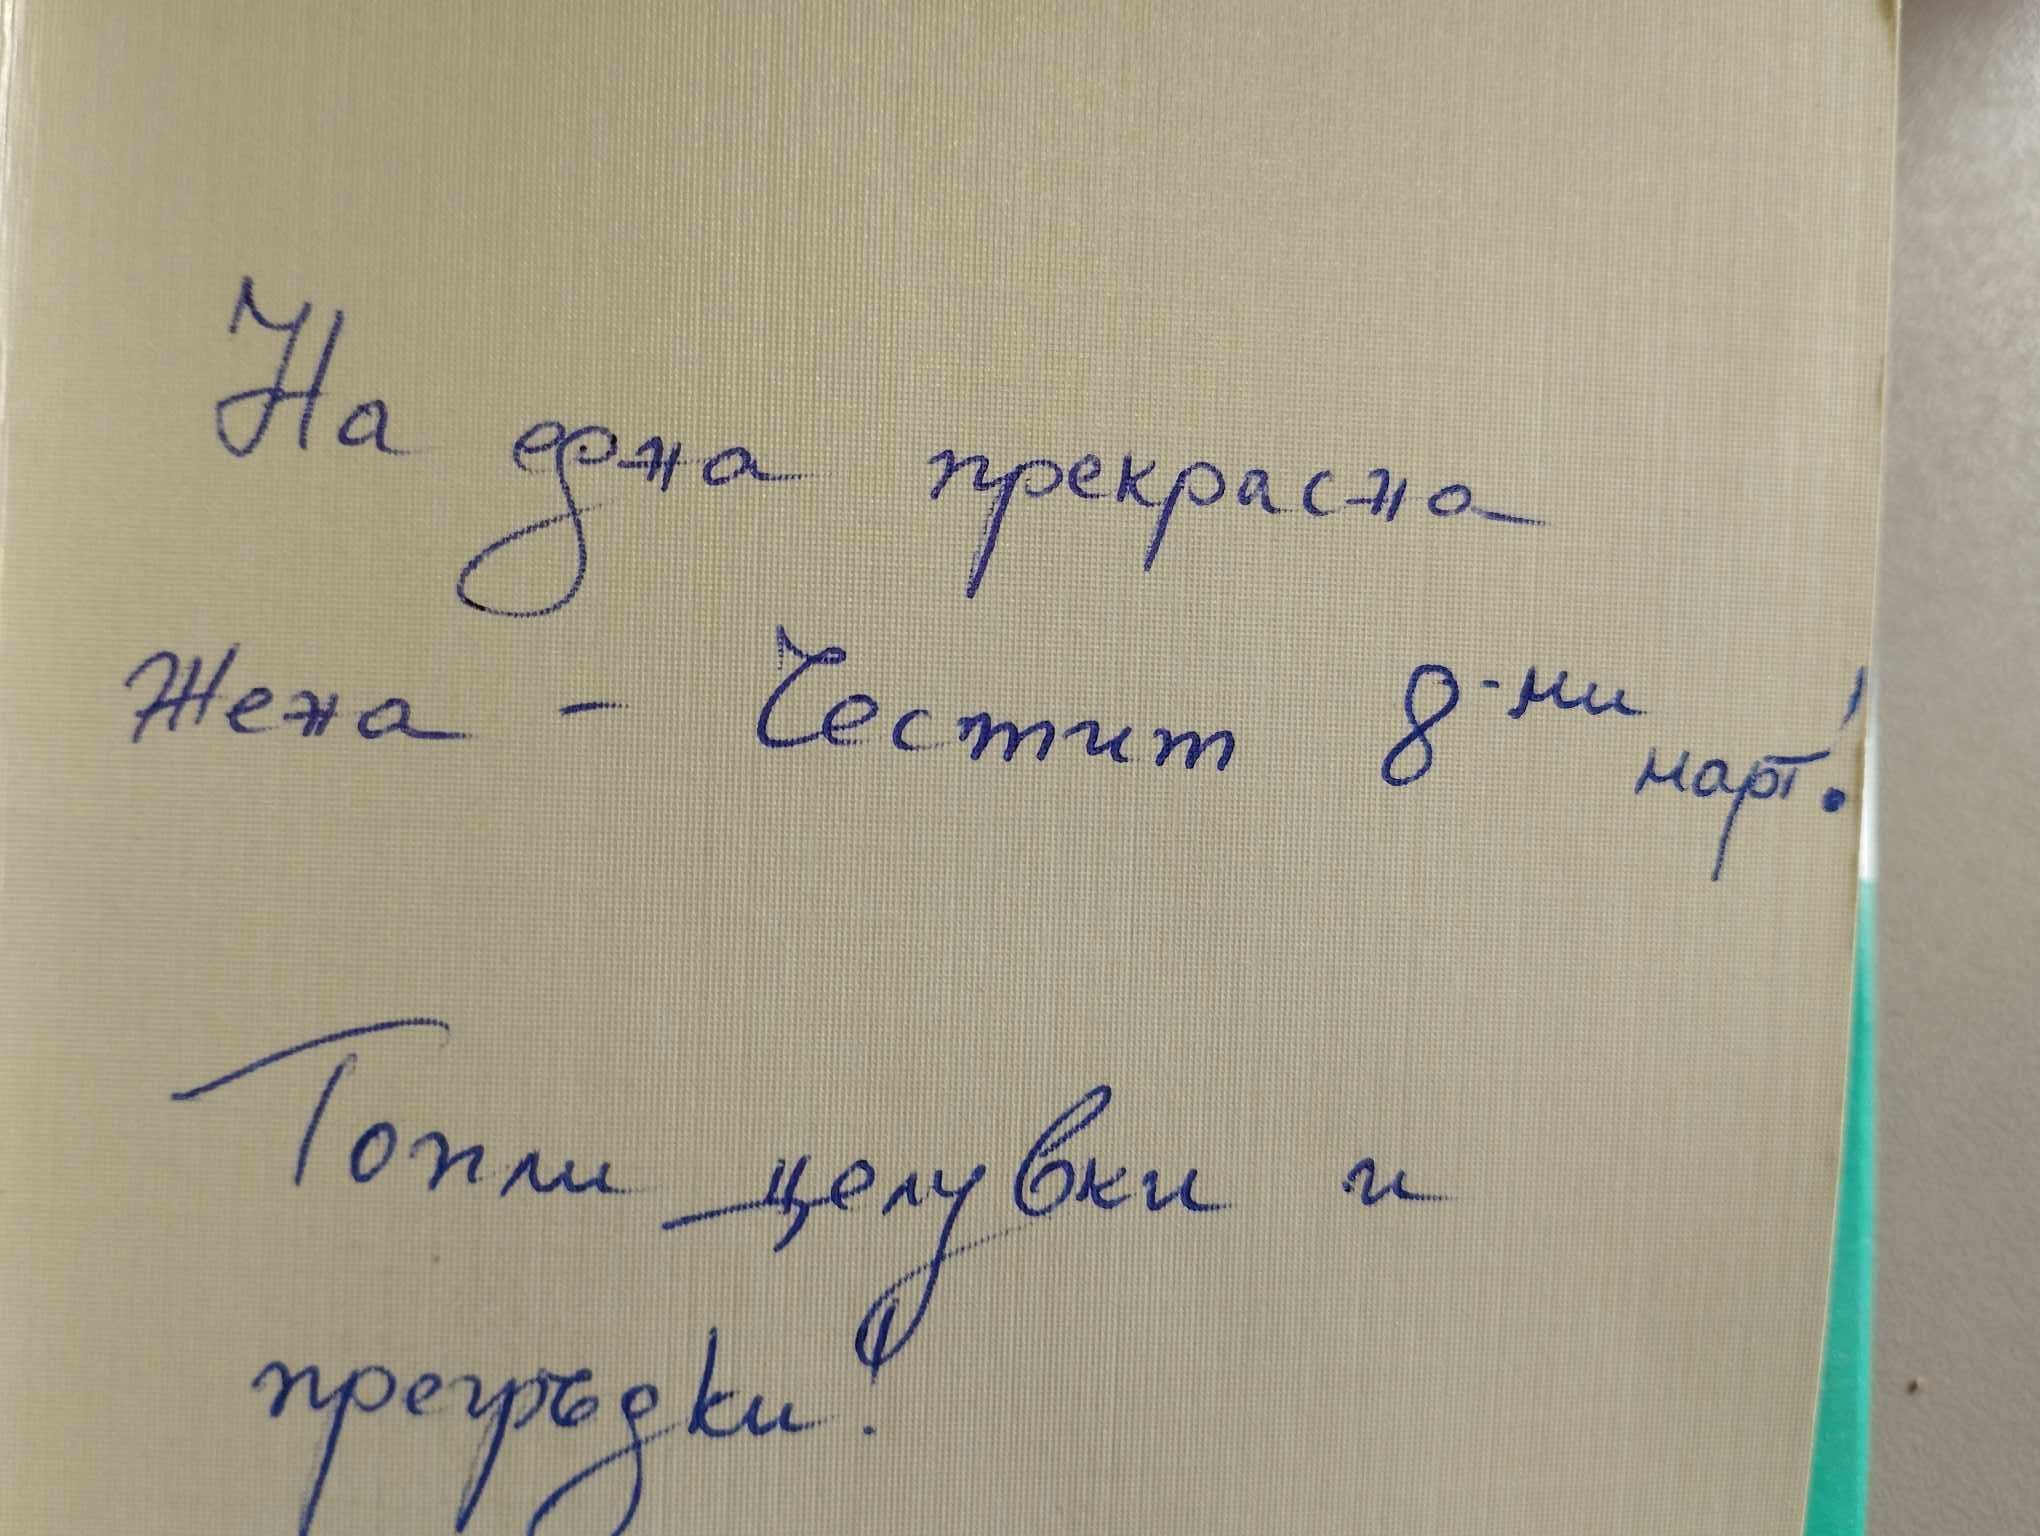 На една прекрасна
Жена - Честит 8-ми март!
Топли целувки и
прегръдки!